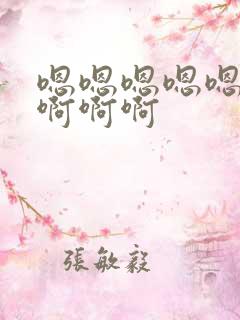 嗯嗯嗯嗯嗯
啊啊啊
張敏毅